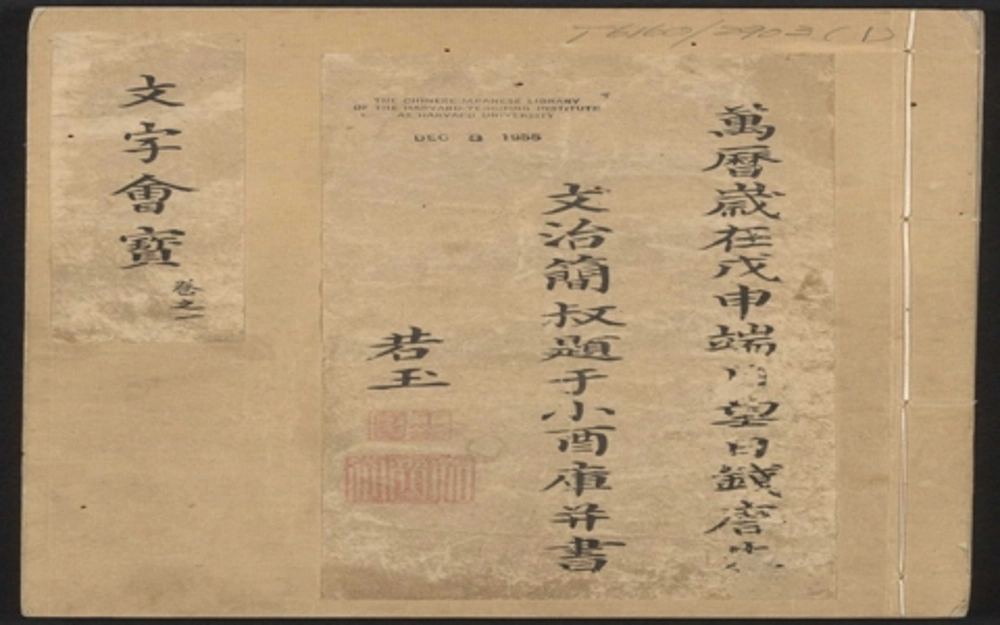 THE CHINESE-JAPANESE LIBRARY
OF THE HARVARD-YENCHING INSTITUTE
AT HARVARD UNIVERSITY
DEC 1955
萬曆歲在戊申端月望日錢唐朱
文治簡叔題于小酉庫并書
若玉
文字會寶
卷之一